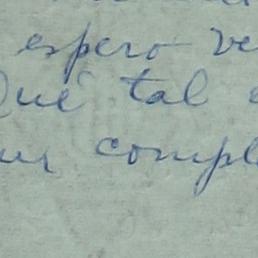 espero ve
Qué tal
compl